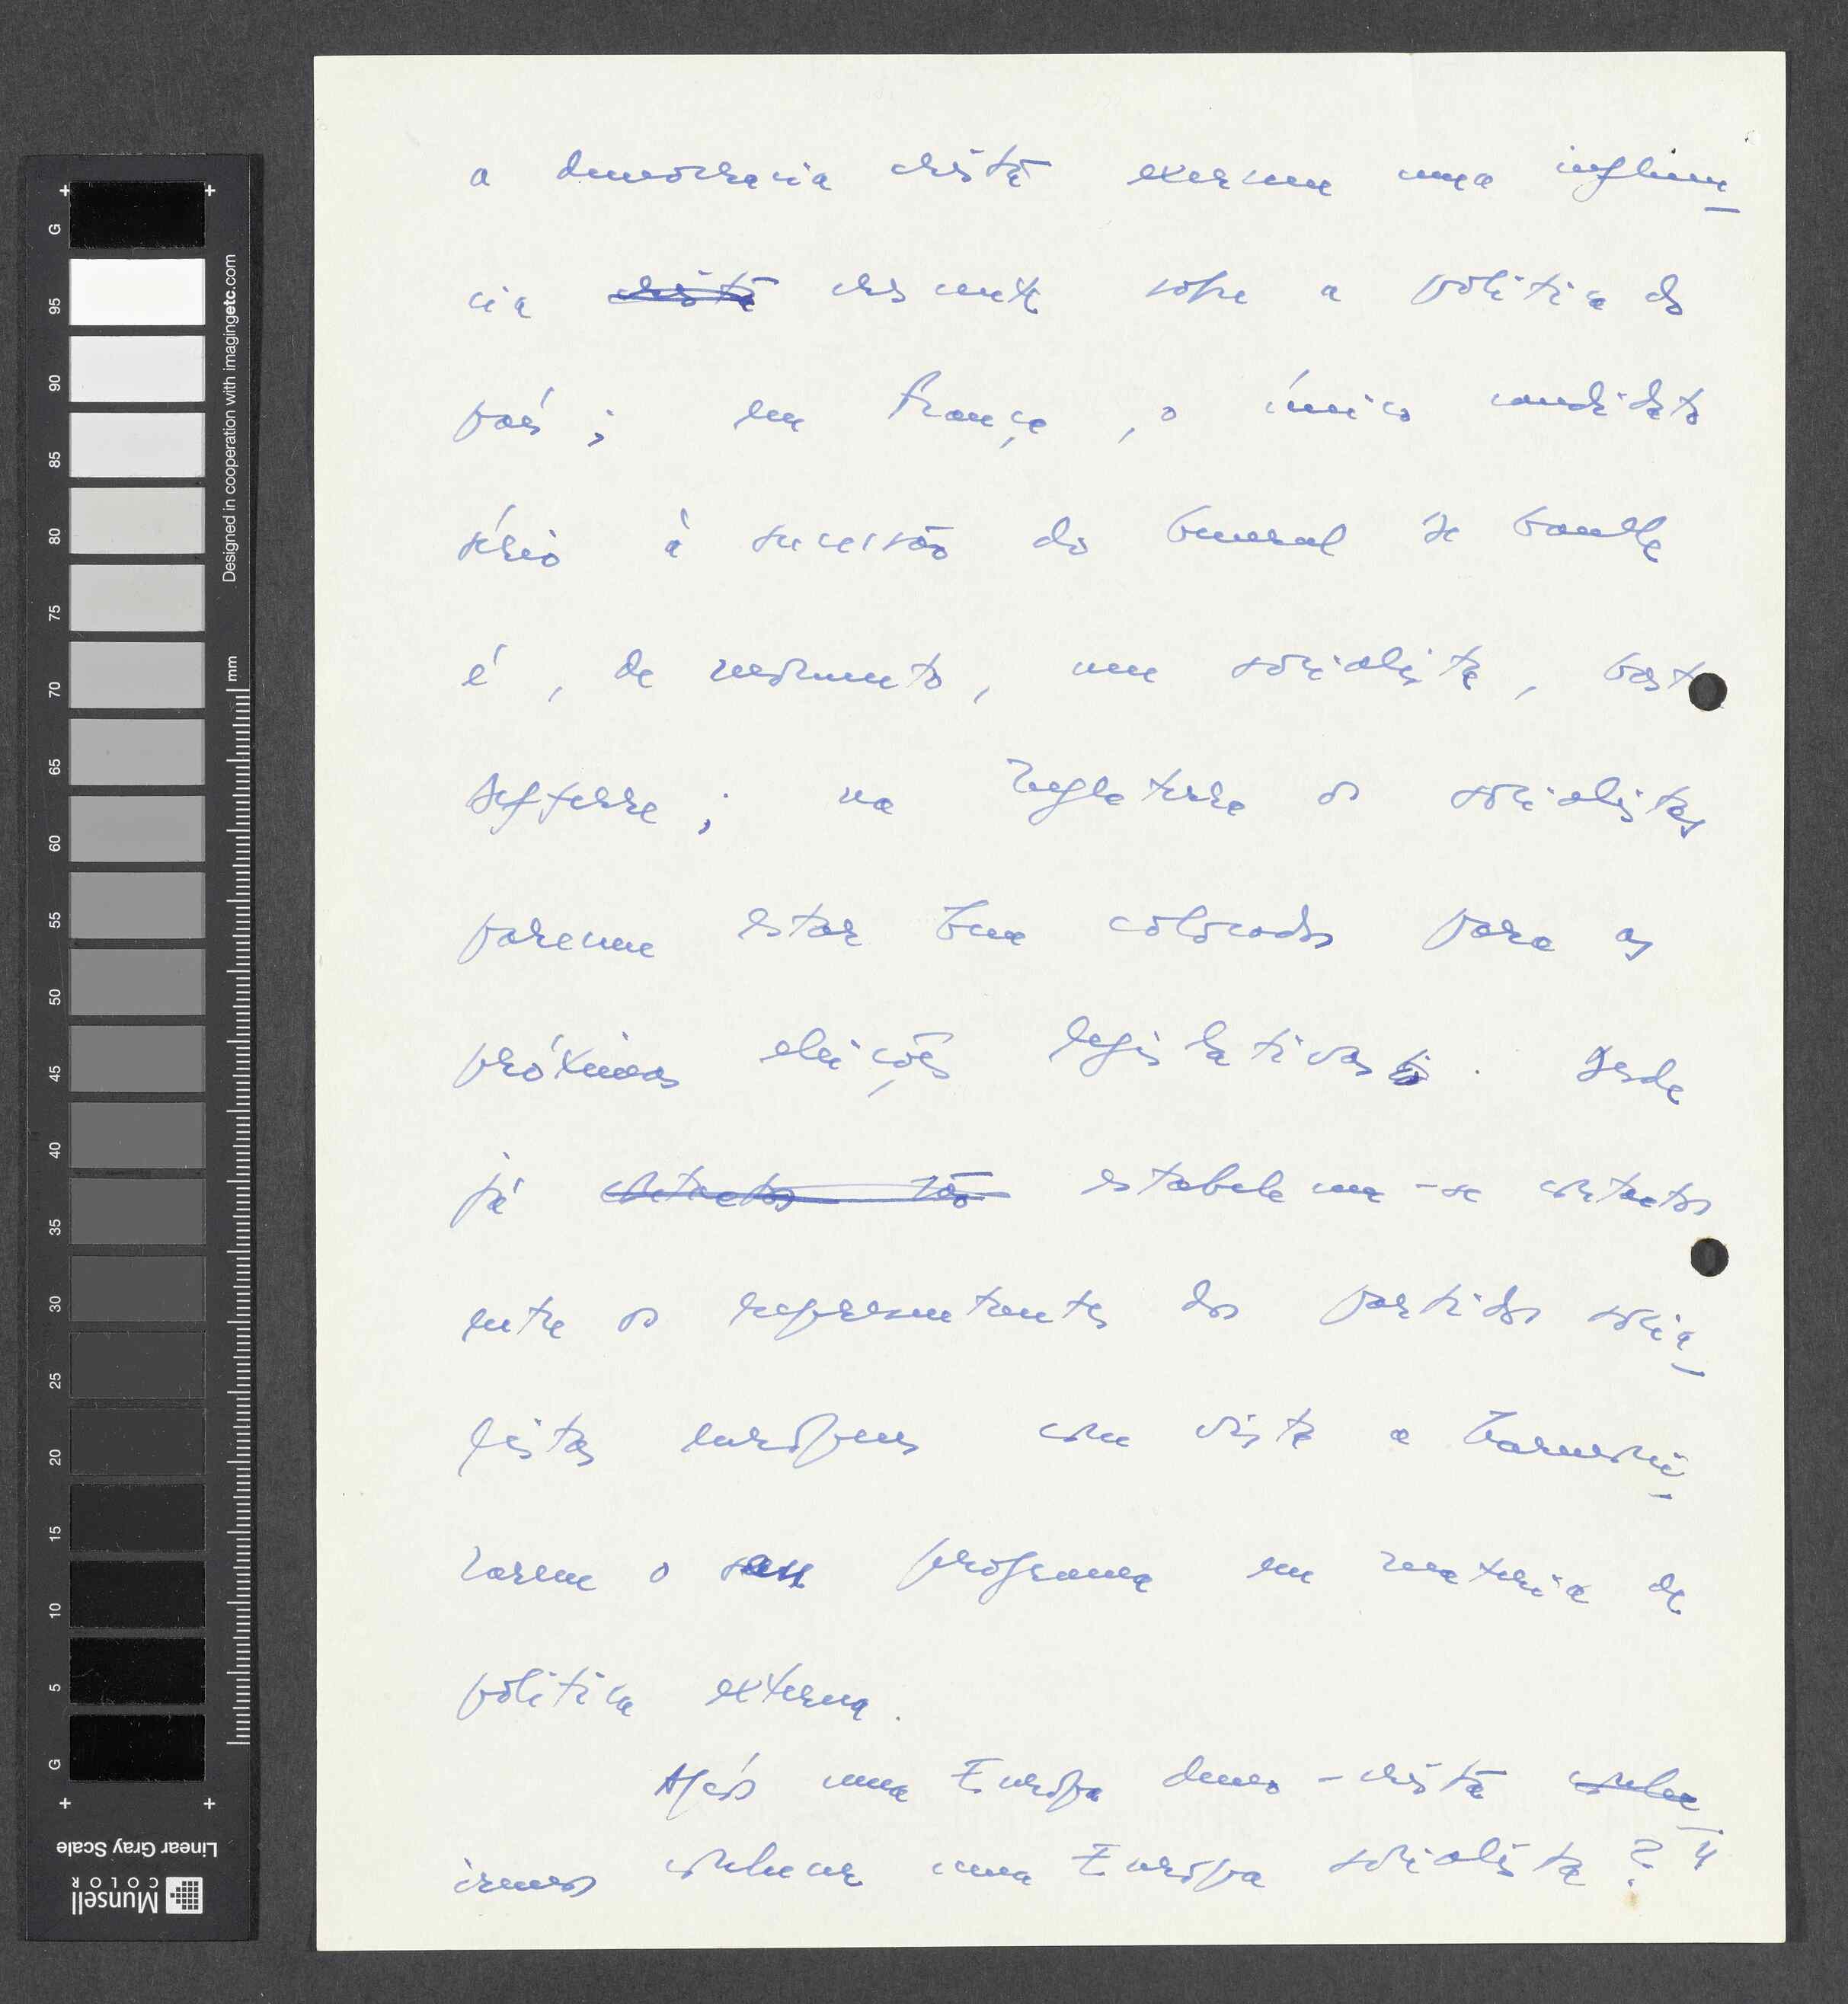 a democracia cristã exerceu uma influên-
cia cristã crescente sobre a politica do
país ; em França , o único candidato
sério à sucessão do General de Gaulle
é , de momento , um socialista , Gaston
Defferre ; na Inglaterra os socialistas
parecem estar bem colocados para as
próximas eleições legislativas . Desde
já contactos são estabelecem-se contactos
entre os representantes dos partidos socia-
listas europeus com vista a harmoni-
zarem o seu programa em materia de
politica externa .
Após uma Europa demo-cristã
iremos conhecer uma Europa socialista ? "
G 95 90 85 80 75 70 65 60 55 50 45 40 35 30 25 20 15 10 5 G
Designed in cooperation with imagingetc.com
mm
Linear Gray Scale
Munsell
COLOR